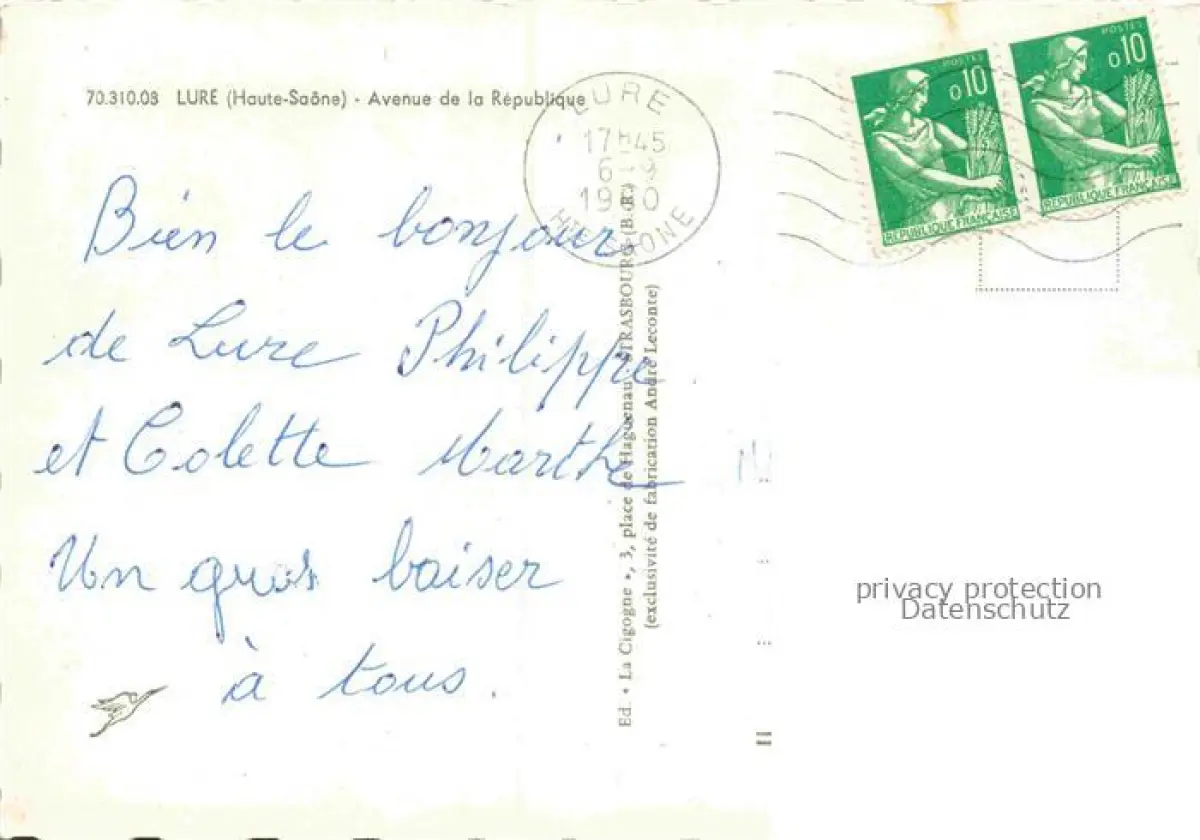 70.310.03 LURE (Haute-Saône) - Avenue de la République
LURE
17H45
6-9
19 0
HTE SAONE
POSTES
0,10
REPUBLIQUE FRANÇAISE
POSTES
0,10
REPUBLIQUE FRANÇAISE
Bien le bonjour
de Lure Philippe
et Colette Marthe
Un gros baiser
à tous.
Ed. "La Cigogne", 3, place de Haguenau STRASBOURG (B.R)
(exclusivité de fabrication André Leconte)
privacy protection
Datenschutz